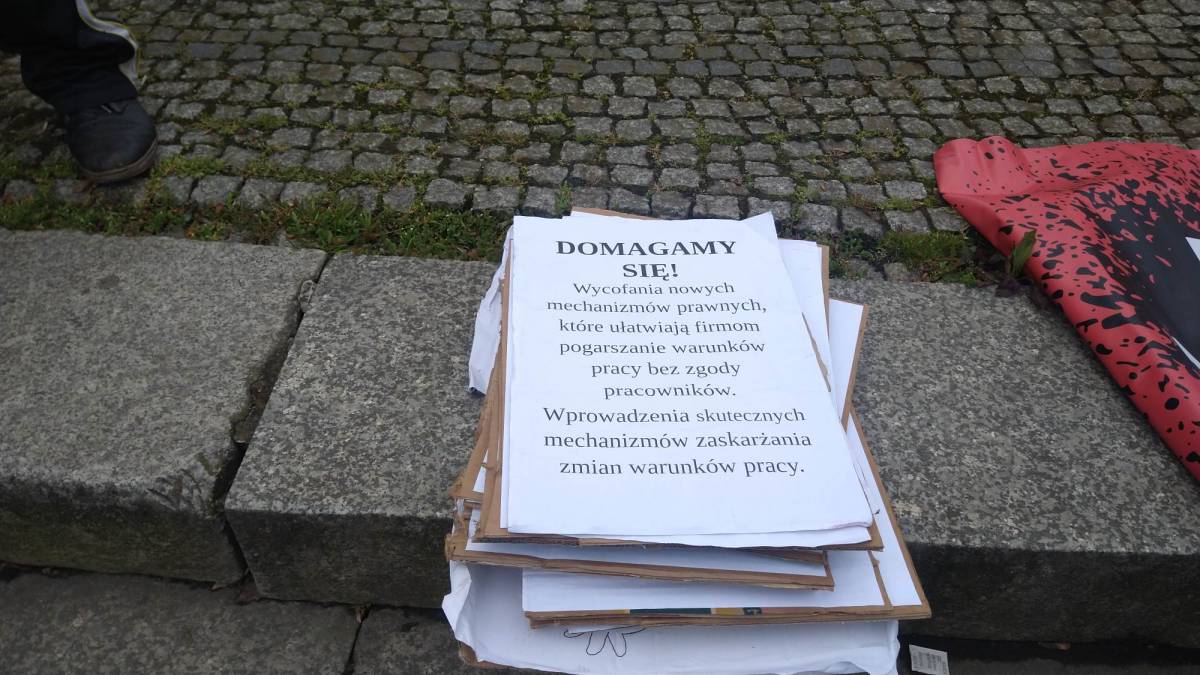 DOMAGAMY
SIĘ!
Wycofania nowych
mechanizmów prawnych,
które ułatwiają firmom
pogarszanie warunków
pracy bez zgody
pracowników.
Wprowadzenia skutecznych
mechanizmów zaskarżania
zmian warunków pracy.